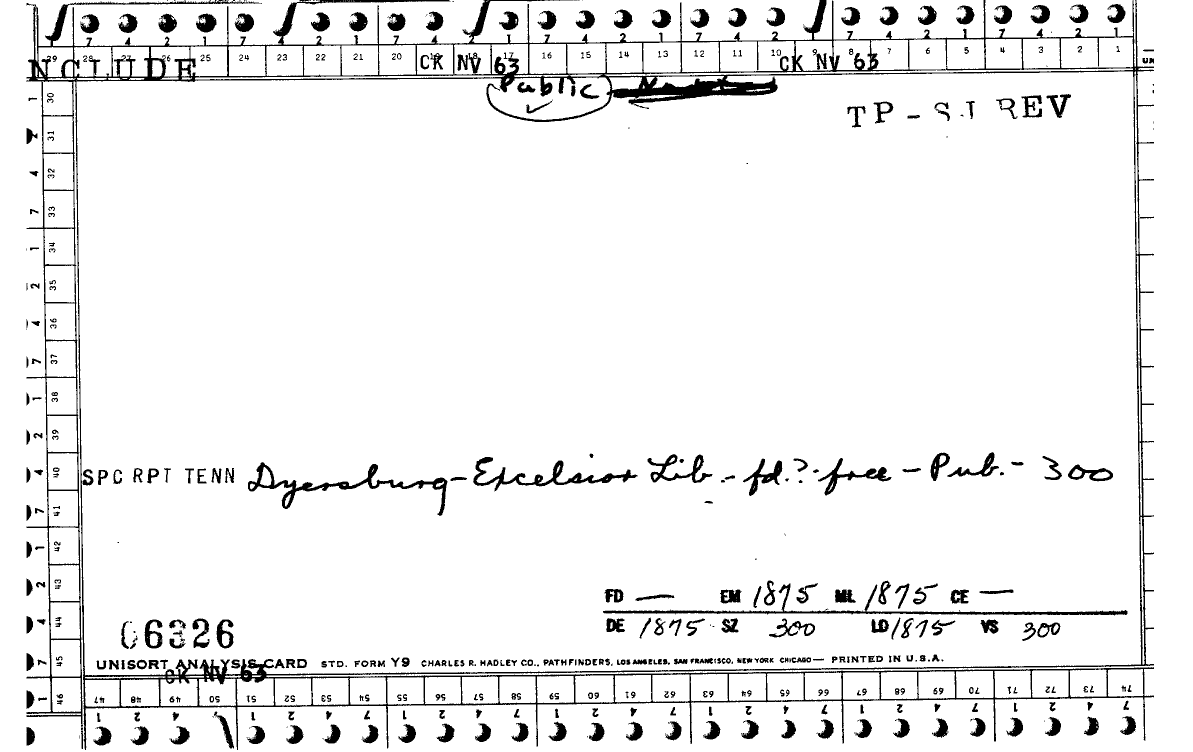 7 4 2 1 7 4 2 1 7 4 2 1 7 4 2 1 7 4 2 1 7 4 2 1
29 28 27 26 25 24 23 22 21 20 19 18 17 16 15 14 13 12 11 10 9 8 7 6 5 4 3 2 1
NCLUDE CK NV 63 CK NV 63
Public
TP - SJ REV
1 30
2 31
4 32
7 33
1 34
2 35
4 36
7 37
1 38
2 39
4 40
SPC RPT TENN Dyersburg - Excelsior Lib. - fd.? - free - Pub. - 300
7 41
1 42
2 43
FD — EM 1875 ML 1875 CE —
4 44
DE 1875 SZ 300 LD 1875 VS 300
06326
7 45
UNISORT ANALYSIS CARD STD. FORM Y9 CHARLES R. HADLEY CO., PATHFINDERS, LOS ANGELES, SAN FRANCISCO, NEW YORK CHICAGO — PRINTED IN U.S.A.
CK NV 63
1 46
47 48 49 50 51 52 53 54 55 56 57 58 59 60 61 62 63 64 65 66 67 68 69 70 71 72 73 74
1 2 4 1 2 4 7 1 2 4 7 1 2 4 7 1 2 4 7 1 2 4 7 1 2 4 7